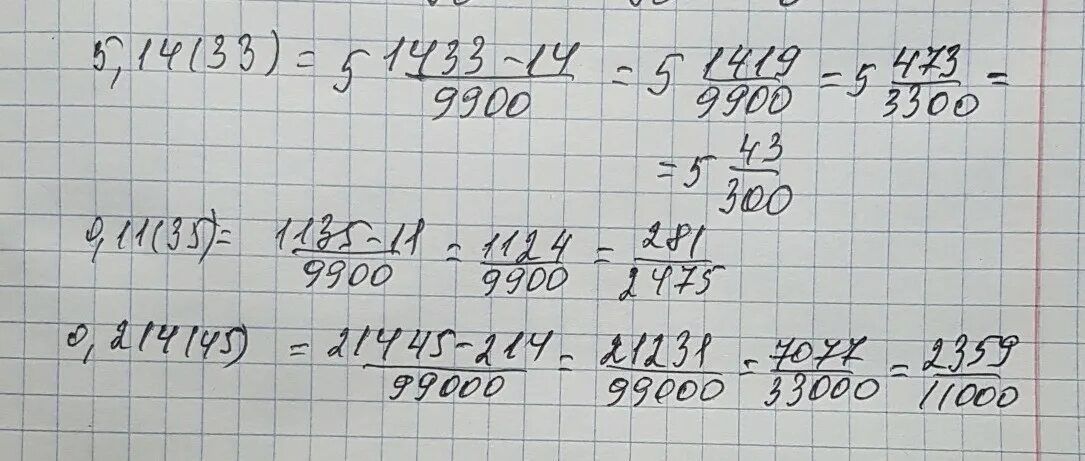 5,14(33) = 5 1433-14/9900 = 5 1419/9900 = 5 473/3300 =
= 5 43/300
0,11(35)= 1135-11/9900 = 1124/9900 = 281/2475
0,214(45) = 21445-214/99000 = 21231/99000 = 7077/33000 = 2359/11000